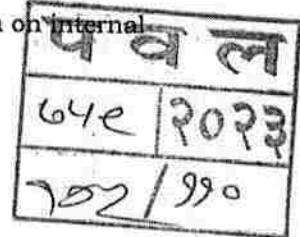 n on internal
प व ल
७५९ २०२३
/ ११०